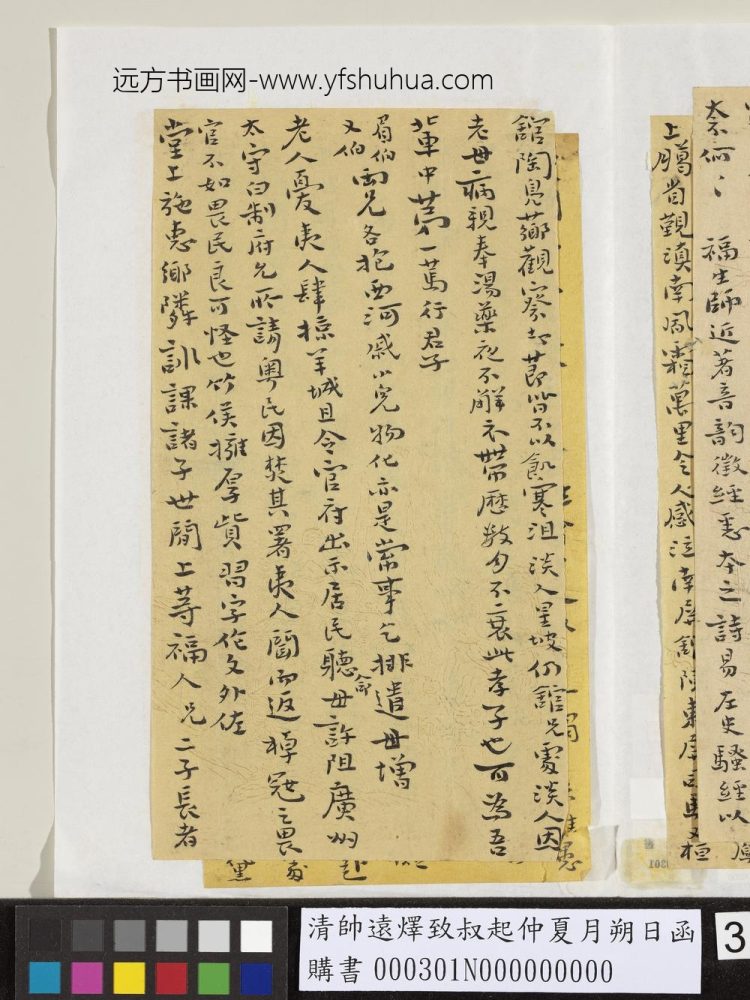 远方书画网-www.yfshuhua.com
奈何〻 福生師近著音韵徵經悉本之詩易左史騷經以
上𦡱省觀滇南風霜萬里令人感泣南屏館陶東屏司馬又桓
館陶見薌觀察均節皆不以飢寒沮淡入星坡仍館兄處淡人因
老母病親奉湯藥夜不解衣帶歷數旬不衰此孝子也可為吾
輩中第一篤行君子
眉伯又伯兩兄各抱西河戚小兒物化亦是常事乞排遣毋增
老人憂夷人肆掠羊城且令官府出示居民聽命毋許阻廣州
太守白制府允所請粤民因焚其署夷人聞而返棹冦之畏
官不如畏民良可怪也竹侯擁厚貲習字作文外佐
堂上施惠鄉隣訓課諸子世間上等福人兄二子長者
清帥遠燡致叔起仲夏月朔日函
購書 000301N000000000
3